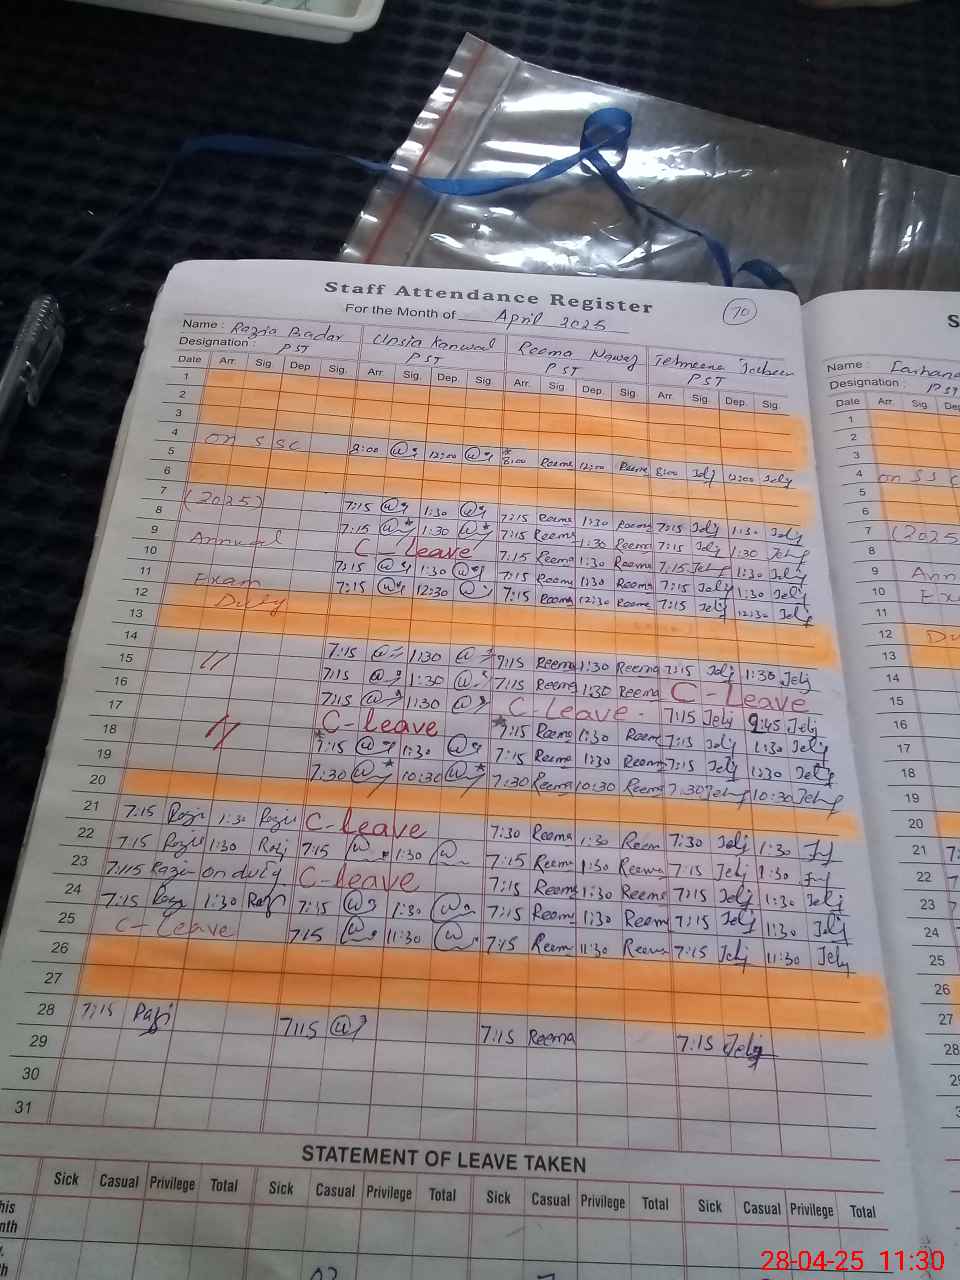 Staff Attendance Register
For the Month of April 2025
70
Name: Razia Badar Unsia Kanwal Reema Nawaz Tehmeena Jabeen
Designation: PST PST PST PST
Date Arr. Sig. Dep. Sig. Arr. Sig. Dep. Sig. Arr. Sig. Dep. Sig. Arr. Sig. Dep. Sig.
1
2
3
4 on SSC 8:00 12:00 8:00 Reema 12:00 Reema 8:00 Jelj 12:00 Jelj
5
6
7 (2025) 7:15 1:30 7:15 Reema 1:30 Reema 7:15 Jelj 1:30 Jelj
8 7:15 1:30 7:15 Reema 1:30 Reema 7:15 Jelj 1:30 Jelj
9 Annual C-leave 7:15 Reema 1:30 Reema 7:15 Jelj 1:30 Jelj
10 7:15 1:30 7:15 Reema 1:30 Reema 7:15 Jelj 1:30 Jelj
11 Exam 7:15 12:30 7:15 Reema 12:30 Reema 7:15 Jelj 12:30 Jelj
12 Duty
13
14 7:15 1:30 7:15 Reema 1:30 Reema 7:15 Jelj 1:30 Jelj
15 11 7:15 1:30 7:15 Reema 1:30 Reema C-Leave
16 7:15 1:30 C-Leave. 7:15 Jelj 9:45 Jelj
17 C-leave 7:15 Reema 1:30 Reem 7:15 Jelj 1:30 Jelj
18 11 7:15 1:30 7:15 Reema 1:30 Reema 7:15 Jelj 1:30 Jelj
19 7:30 10:30 7:30 Reema 10:30 Reema 7:30 Jelj 10:30 Jelj
20
21 7:15 Razi 1:30 Razi C-leave 7:30 Reema 1:30 Reem 7:30 Jelj 1:30
22 7:15 Razi 1:30 Razi 7:15 1:30 7:15 Reema 1:30 Reema 7:15 Jelj 1:30
23 7:15 Razi on duty C-leave 7:15 Reema 1:30 Reema 7:15 Jelj 1:30 Jelj
24 7:15 Razi 1:30 Razi 7:15 1:30 7:15 Reema 1:30 Reem 7:15 Jelj 1:30 Jelj
25 C-Leave 7:15 11:30 7:15 Reem 11:30 Reema 7:15 Jelj 11:30 Jelj
26
27
28 7:15 Razi 7:15 7:15 Reema 7:15 Jelj
29
30
31
STATEMENT OF LEAVE TAKEN
Sick Casual Privilege Total Sick Casual Privilege Total Sick Casual Privilege Total Sick Casual Privilege Total
S
Name: Farhana
Designation: PST
Date Arr. Sig. De
1
2
3
4 on SSC
5
6
7 (2025
8
9 Ann
10 Ex
11
12 Du
13
14
15
16
17
18
19
20
21 7:
22 7
23 7
24
25
26
27
28
28-04-25 11:30